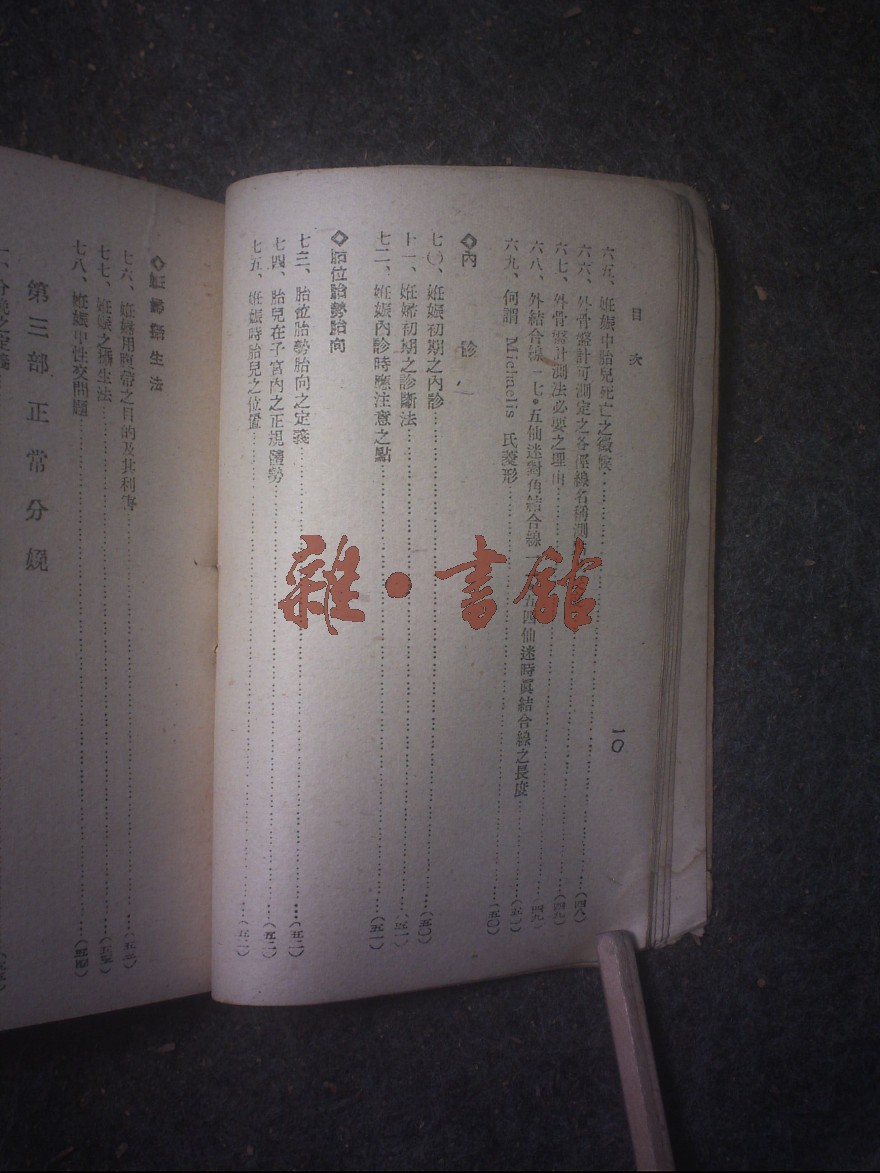 目次
一〇
六五、姙娠中胎兒死亡之徵候
六六、外骨盤計可測定之各徑線名稱測 (四八)
六七、外骨盤計測法必要之理由 (四九)
六八、外結合線一七•五仙迷對角結合線 仙迷時眞結合線之長度 四九
六九、何謂 Michaelis 氏菱形 (五〇)
◇內診
七〇、姙娠初期之內診 (五〇)
十一、姙婦初期之診斷法 (五一)
七二、姙娠內診時應注意之點 (五一)
◇胎位胎勢胎向
七三、胎位胎勢胎向之定義 (五二)
七四、胎兒在子宮內之正規體勢 (五二)
七五、姙娠時胎兒之位置
◇姙婦衛生法
七六、姙婦用腹帶之目的及其利害
七七、姙娠之攝生法
七八、姙娠中性交問題 (五四)
第三部正常分娩
一、分娩之定義
雜•書館